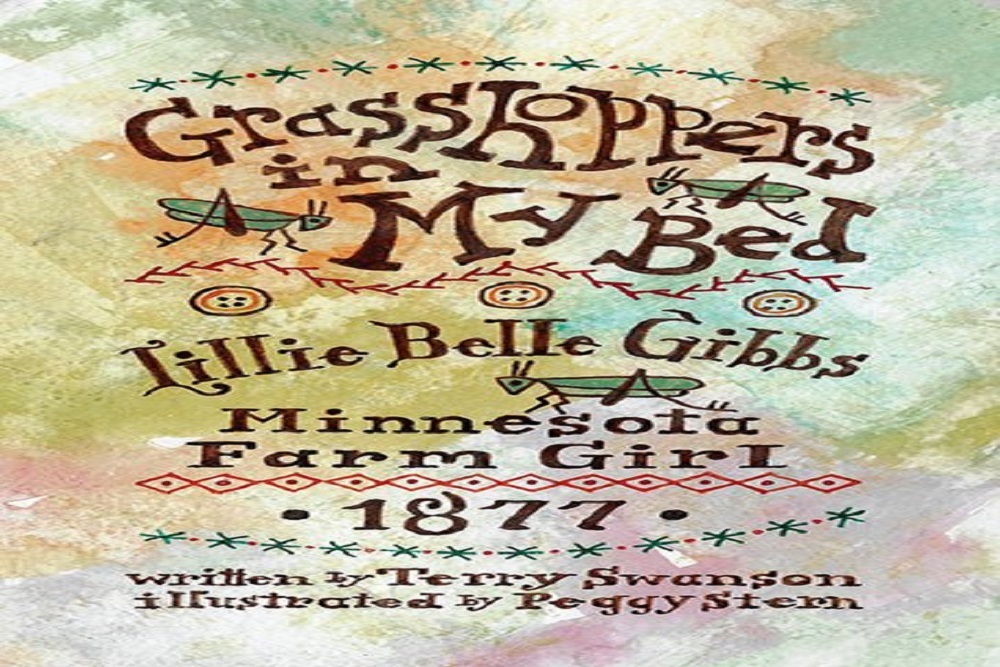 Grasshoppers
in
My Bed
Lillie Belle Gibbs
Minnesota
Farm Girl
• 1877 •
written by Terry Swanson
illustrated by Peggy Stern